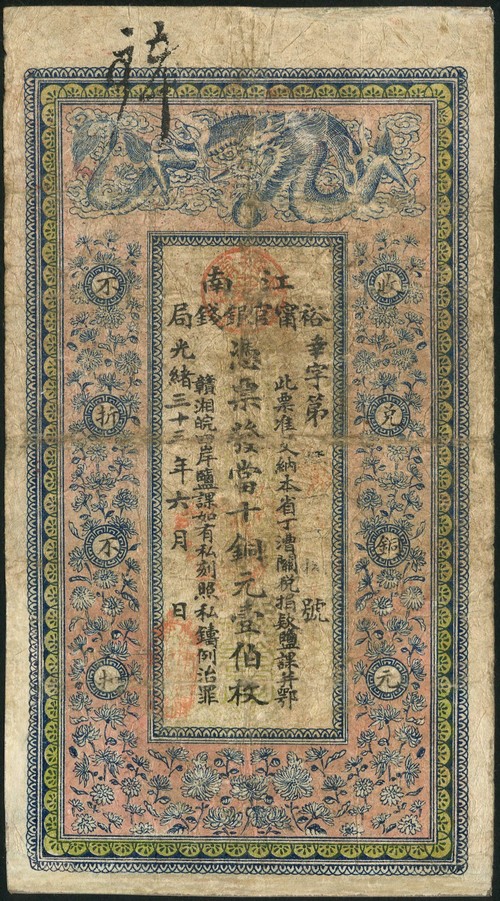 江南
裕甯官銀錢局
字第
號
此票准交納本省丁漕關稅捐款鹽課并鄂
贛湘皖四岸鹽課如有私刻照私鑄例治罪
憑票發當十銅元壹佰枚
光緒三十三年六月 日
收兌銅元
不折不扣